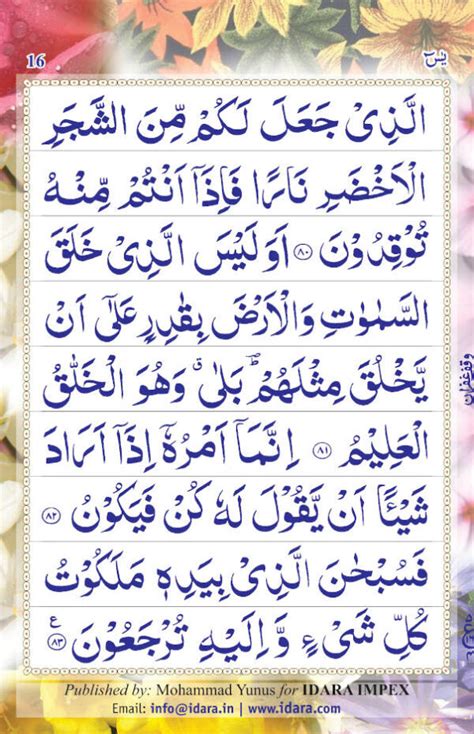 16 يٰسٓ
الَّذِىْ جَعَلَ لَكُمْ مِّنَ الشَّجَرِ
الْاَخْضَرِ نَارًا فَاِذَاۤ اَنْتُمْ مِّنْهُ
تُوْقِدُوْنَ ٨٠ اَوَلَيْسَ الَّذِىْ خَلَقَ
السَّمٰوٰتِ وَالْاَرْضَ بِقٰدِرٍ عَلٰٓى اَنْ
يَّخْلُقَ مِثْلَهُمْ ؕ بَلٰى ۗ وَهُوَ الْخَلّٰقُ
وقف غفران
الْعَلِيْمُ ٨١ اِنَّمَاۤ اَمْرُهٗۤ اِذَاۤ اَرَادَ
شَيْـًٔا اَنْ يَّقُوْلَ لَهٗ كُنْ فَيَكُوْنُ ٨٢
فَسُبْحٰنَ الَّذِىْ بِيَدِهٖ مَلَكُوْتُ
كُلِّ شَىْءٍ وَّاِلَيْهِ تُرْجَعُوْنَ ٨٣ ع
Published by: Mohammad Yunus for IDARA IMPEX
Email: info@idara.in | www.idara.com